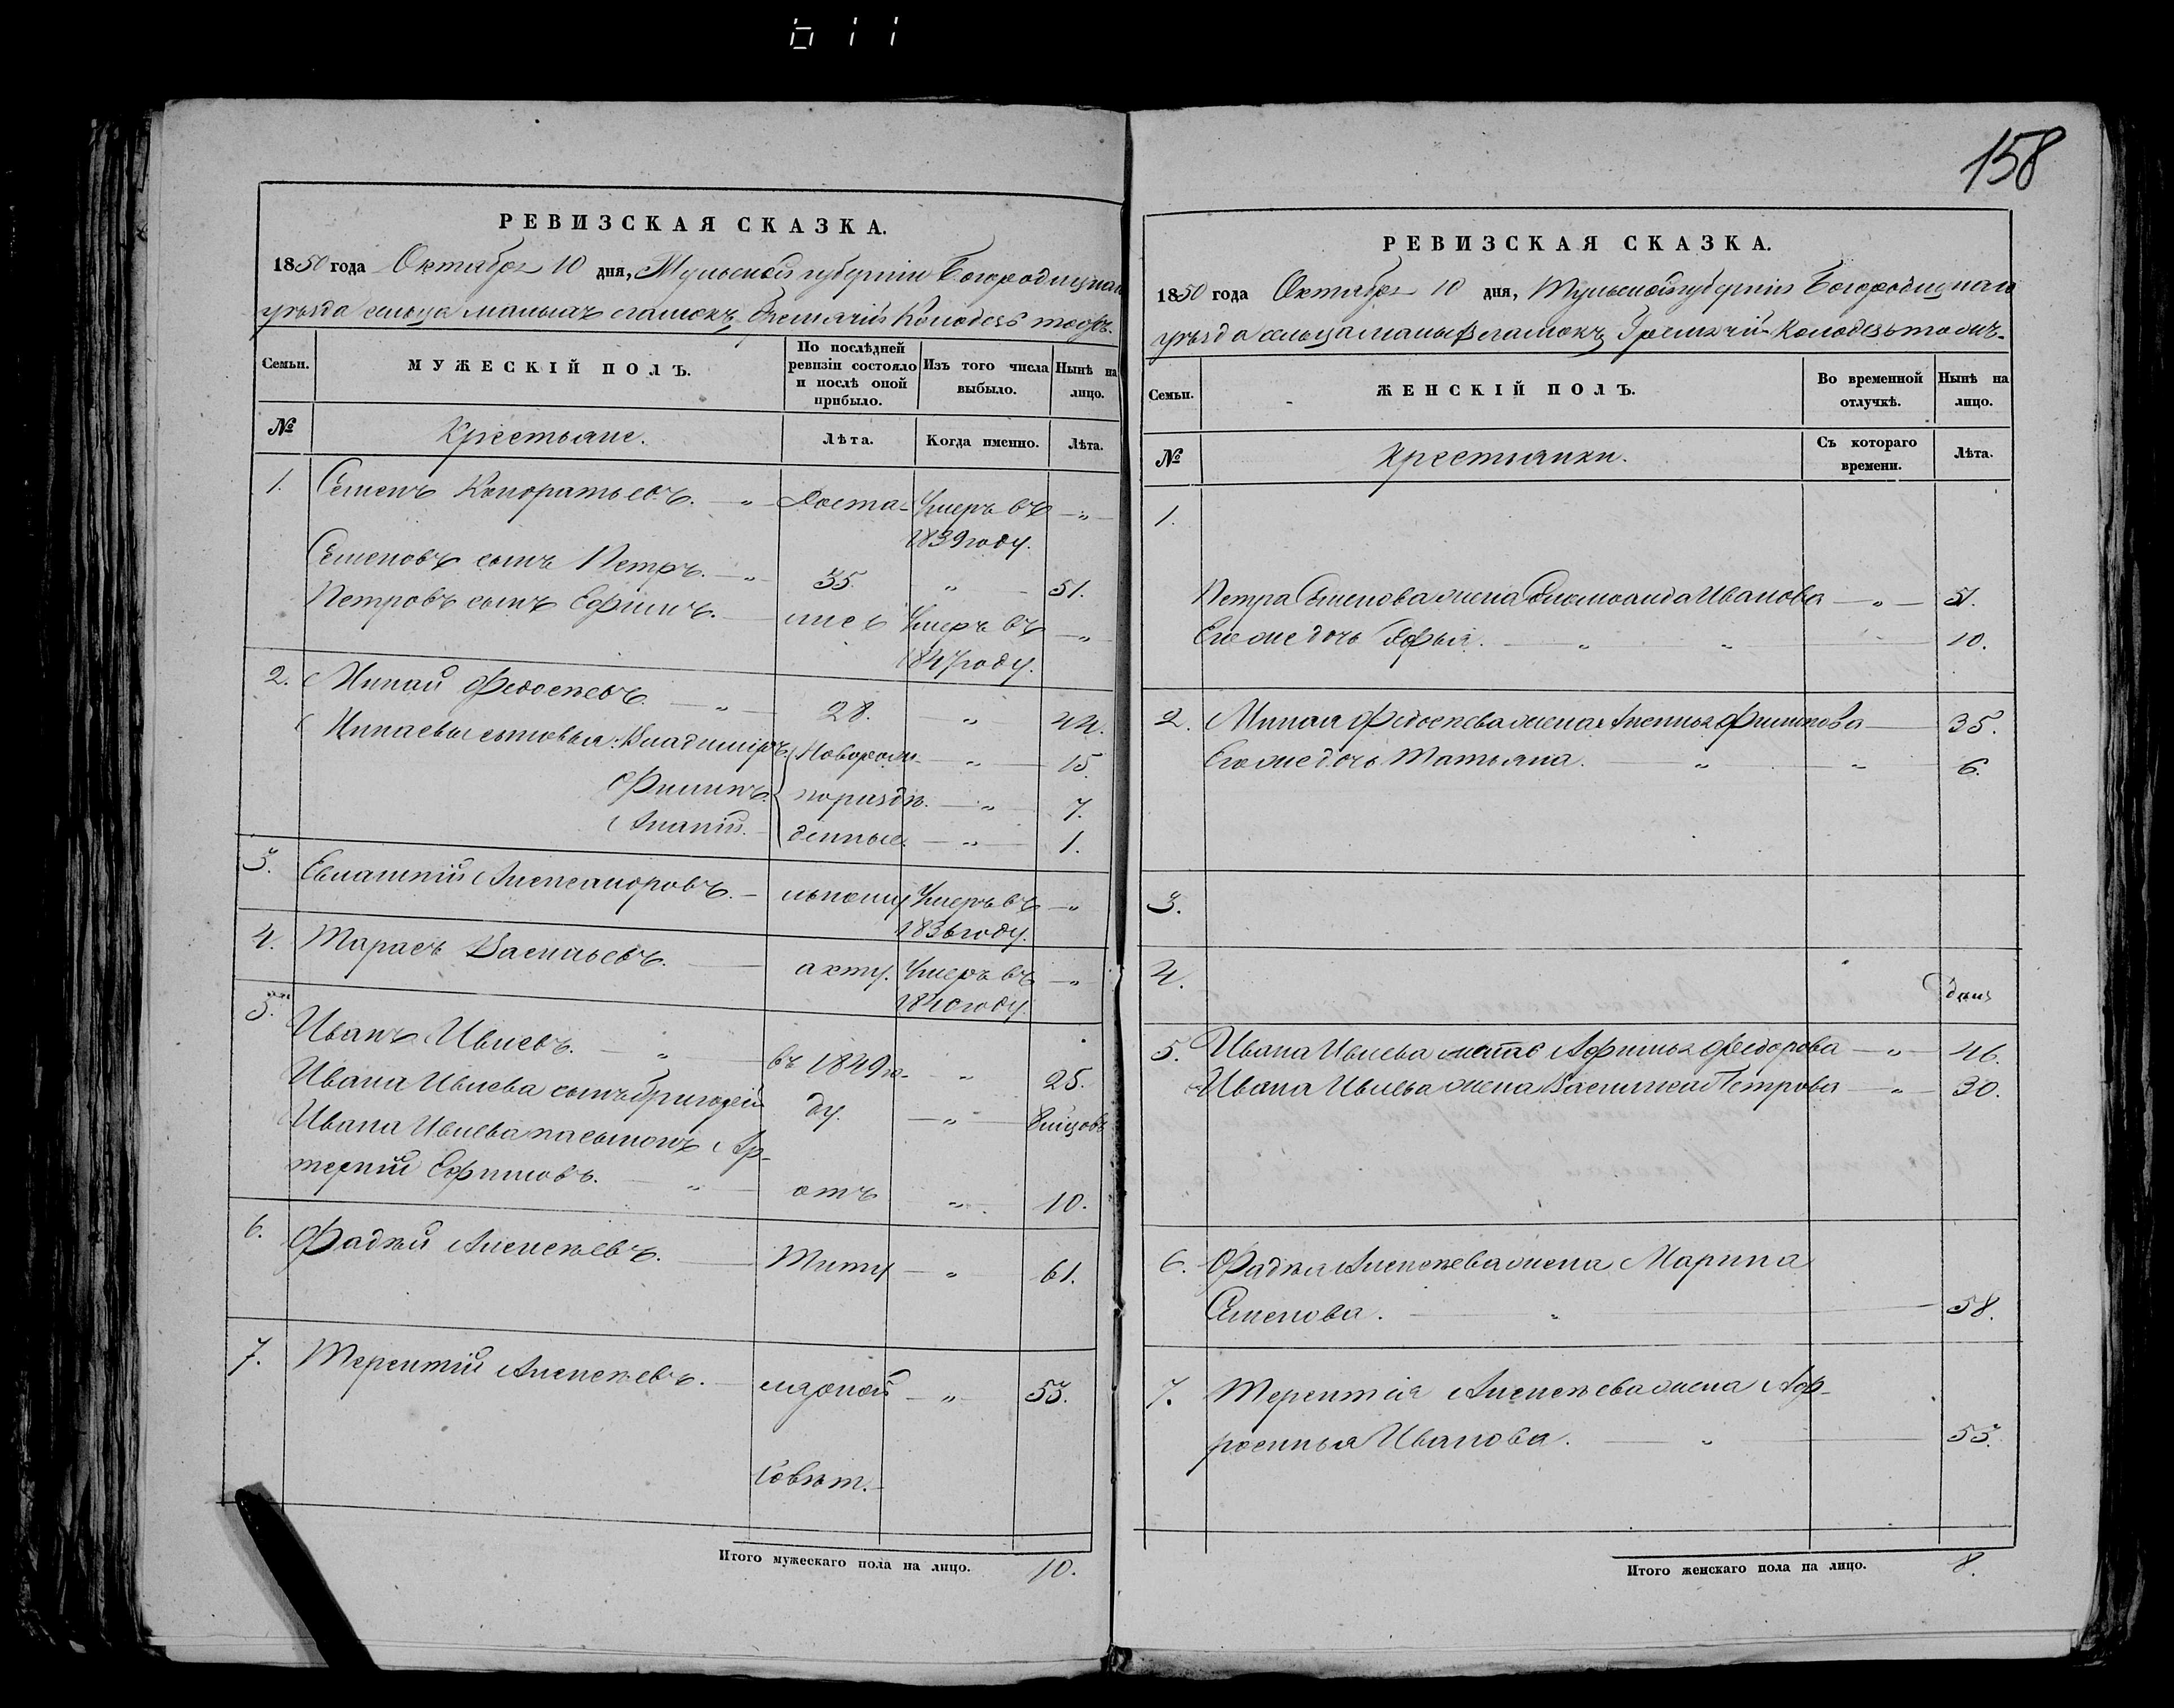 611
РЕВИЗСКАЯ СКАЗКА.
1850 года Октября 10 дня, Тульской губерніи Богородицкаго
уѣзда сельца малыхъ Колодезь тожъ.
Семьи. МУЖЕСКІЙ ПОЛЪ. По послѣдней ревизіи состояло и послѣ оной прибыло. Изъ того числа выбыло. Нынѣ на лицо.
№ Крестьяне. Лѣта. Когда именно. Лѣта.
1. Семенъ Кондратьевъ. — „ — Умеръ въ — „ —
1839 году.
Семеновъ сынъ Петръ. — „ — 35. „ — 51.
Петровъ сынъ Ефимъ. — Умеръ въ — „
1847 году.
2. Минай Федосѣевъ. — „ — 28. — „ — 44.
Минаевы сыновья: Владиміръ Новорож- — „ — 15.
Филипъ. — „ — 7.
Ананій. денные. — „ — 1.
3. Александровъ. — Умеръ въ — „
1836 году.
4. Тарасъ Васильевъ. — Умеръ въ — „
1840 году.
5. Иванъ Ивлевъ. — „ — въ 1849 го- „ 25.
Ивана Ивлева сынъ Григорей ду. — „ — 8 мѣсцовъ
Ивана Ивлева пасынокъ Ар-
темій Ефимовъ. — „ — отъ „ 10.
6. Фадѣй Алексѣевъ. — — „ 61.
7. Терентій Алексѣевъ. — — „ — 53.
Итого мужескаго пола на лицо. 10.
158
РЕВИЗСКАЯ СКАЗКА.
1850 года Октября 10 дня, Тульской губерніи Богородицкаго
уѣзда сельца малыхъ Колодезь тожъ.
Семьи. ЖЕНСКІЙ ПОЛЪ. Во временной отлучкѣ. Нынѣ на лицо.
№ Крестьянки. Съ котораго времени. Лѣта.
1.
Петра Семенова жена Иванова — „ — 51.
Его же дочь Софья. — „ „ — 10.
2. Миная Федосѣева жена Аксинья Филипова — 35.
Его же дочь Татьяна. „ — „ — 6.
3.
4.
5. Ивана Ивлева мать Афимья Федорова — „ — 46.
Ивана Ивлева жена Василиса Петрова — „ — 30.
6. Фадѣя Алексѣева жена Марина
Семенова. — „ — 58.
7. Терентія Алексѣева жена Аф-
росинья Иванова. — „ — 55.
Итого женскаго пола на лицо. 8.